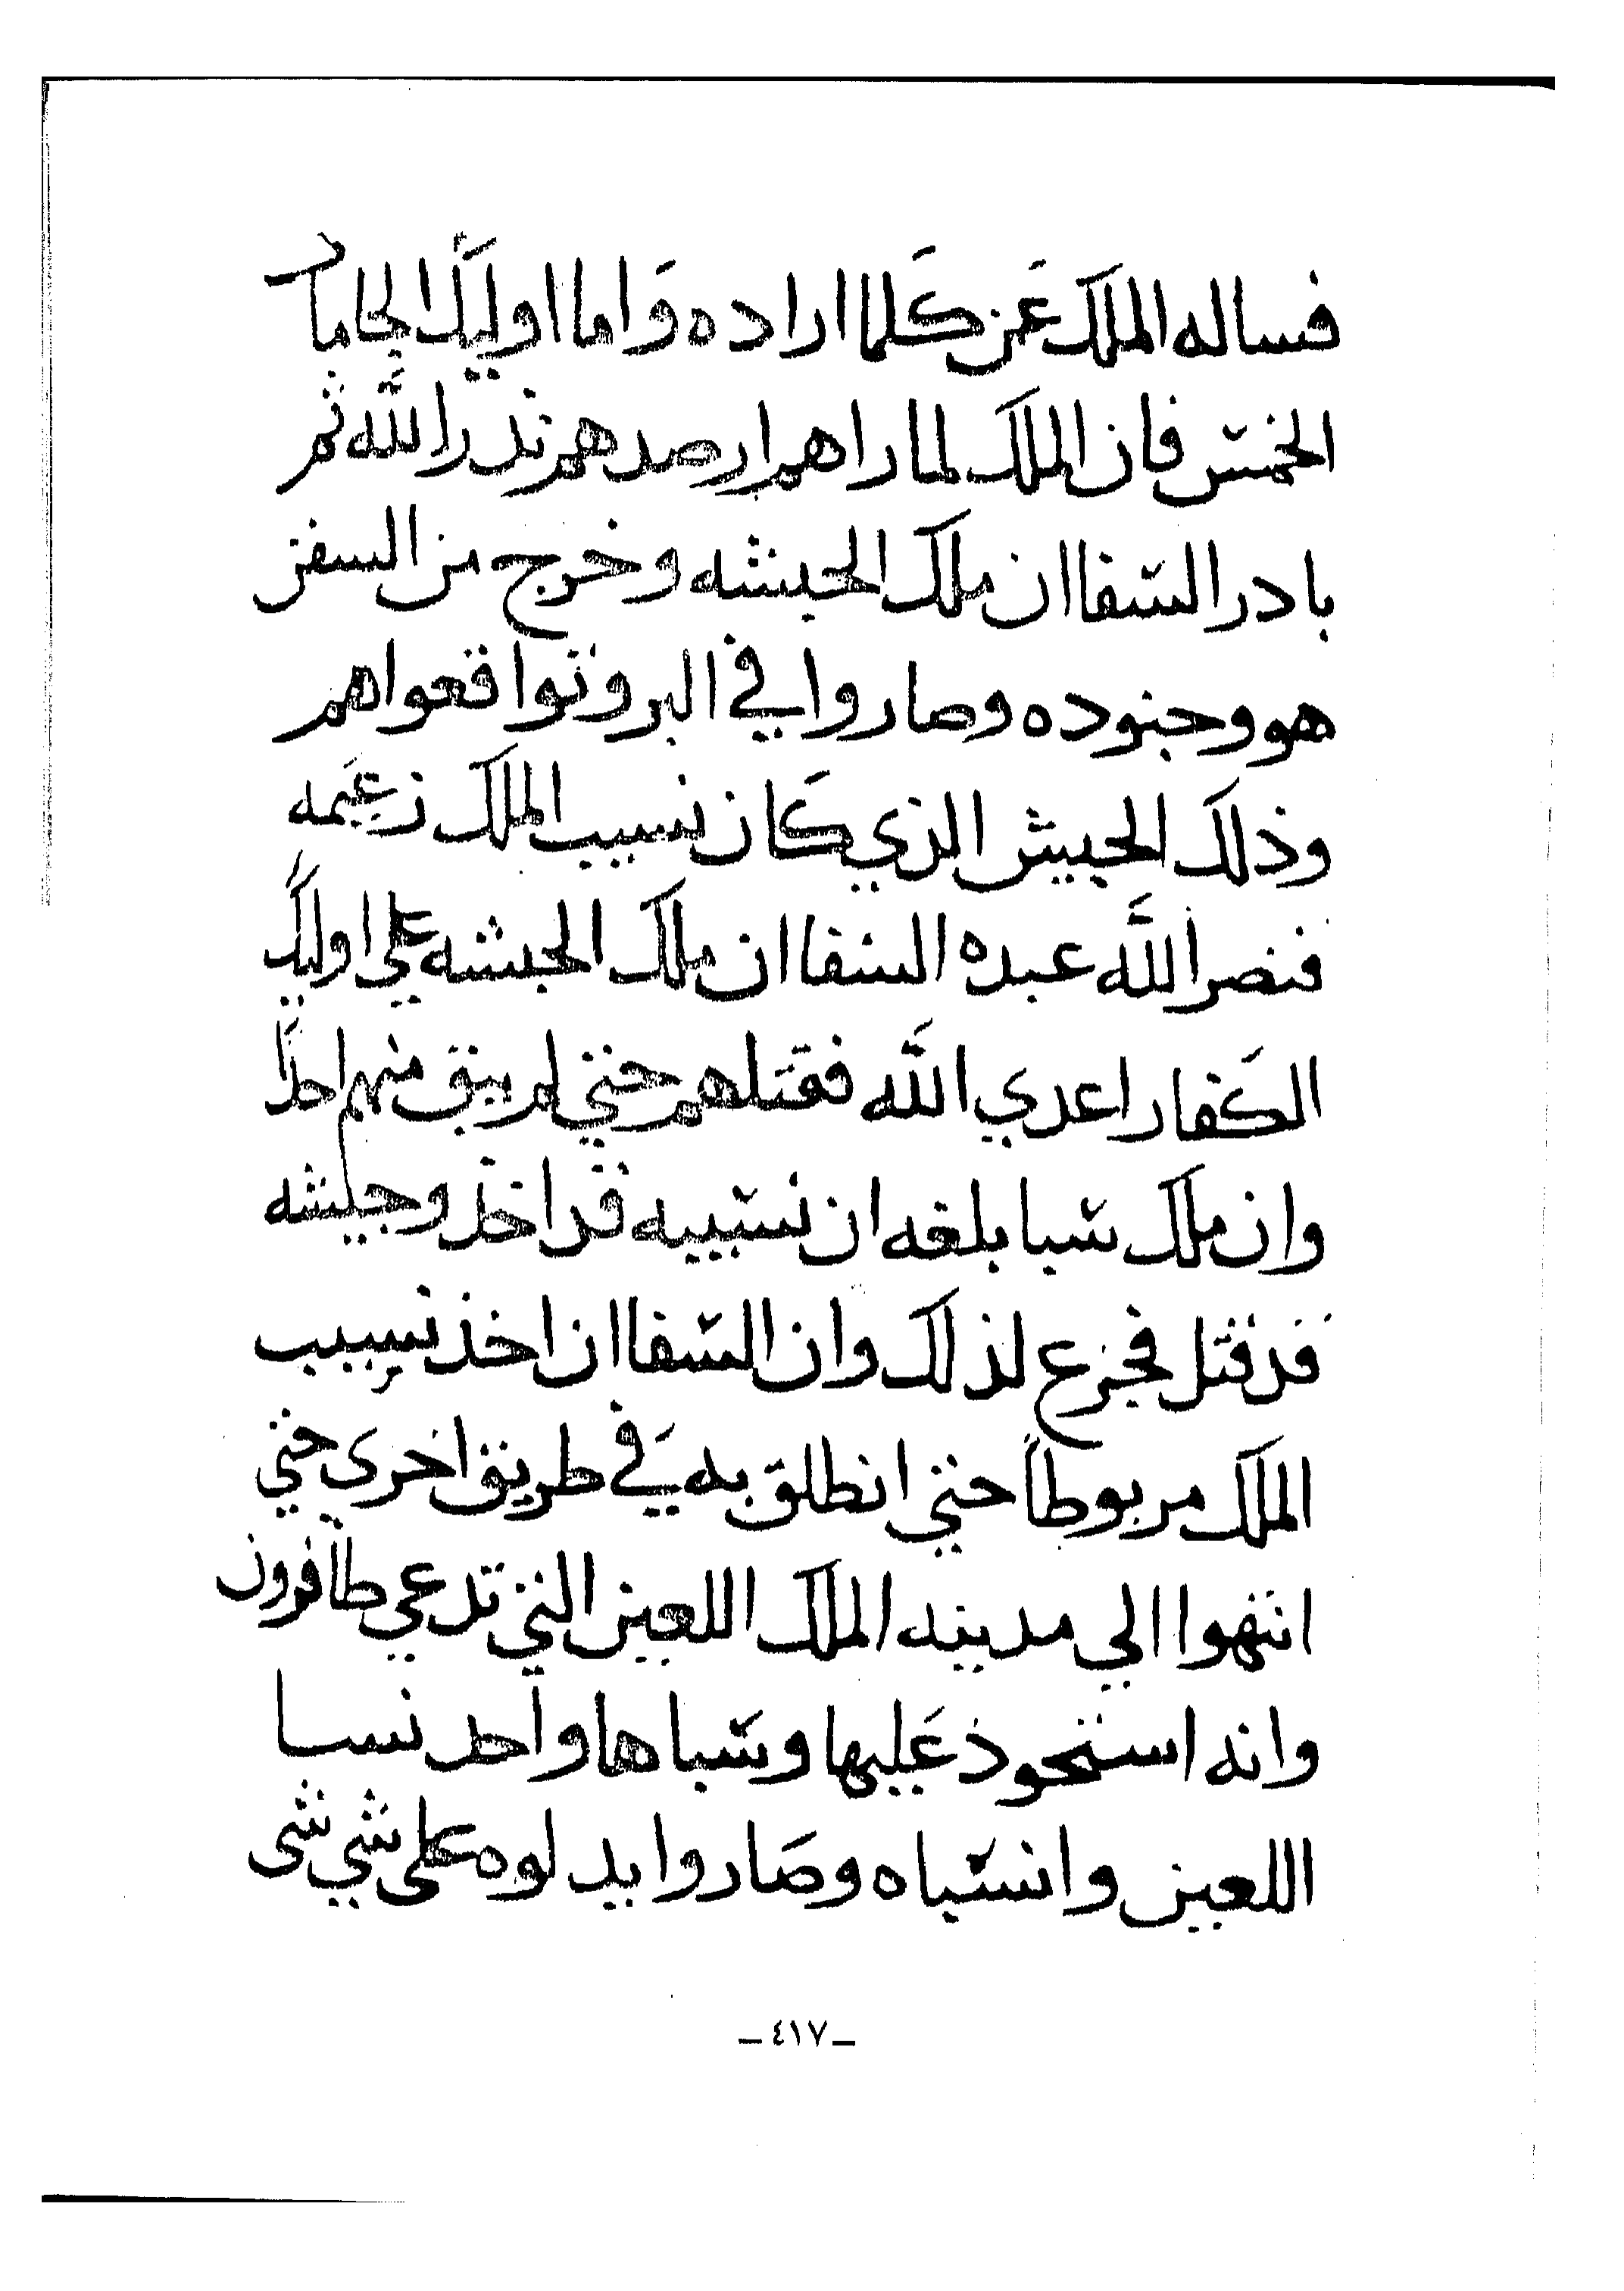 فساله الملك عن كلما اراده واما اوليك الجاباد
الخمس فان الملك لما راهم ارصدهم ندر الله ثم
بادر السفاان ملك الحبشه وخرج من السفن
هو وجنوده وصاروا في البر وتواقعوا هم
وذلك الجيش الذي كان نسيب الملك زعيمه
فنصر الله عبده السفاان ملك الحبشه علي اوليك
الكفار اعدي الله فقتلهم حتي لم يبق منهم احداً
وان ملك سبا بلغه ان نسيبه قد اخذ وجيشه
قد قتل فجزع لذلك وان السفاان اخذ نسيب
الملك مربوطاً حتي انطلق به في طريق اخرى حتي
انتهوا الي مدينه الملك اللعين التي تدعي طافرون
وانه استحوذ عليها وسباها واحد نسا
اللعين وانسباه وصاروا يدلوه على شي شى
ـ ٤١٧ ـ